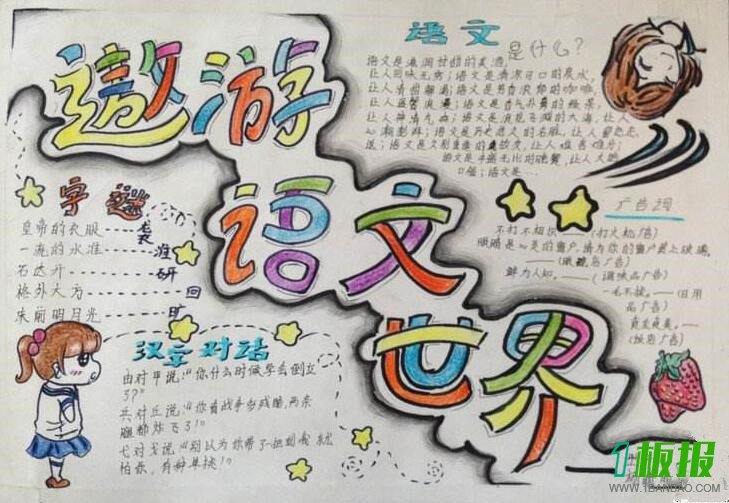 遨游
语文
世界
语文
是什么?
语文是滋润甘甜的美酒,
让人回味无穷;语文是清凉可口的泉水,
让人清甜解渴;语文是芳香浓郁的咖啡,
让人浪漫;语文是香气扑鼻的绿茶,
让人神清气爽;语文是浪花飞溅的大海,让人
心潮澎湃;语文是历史悠久的名胜,让人留恋忘
返;语文是久别重逢的老朋友,让人难舍难分;
语文是丰盛无比的晚餐,让人大饱
口福;语文是…
字谜
皇帝的衣服——袭
一流的水准——淮
石达开——研
格外大方——回
床前明月光——旷
汉字对话
由对甲说:“你什么时候学会倒立
了?”
兵对丘说:“你看战争多残酷,两条
腿都炸飞了!”
弋对戈说:“别以为你带了一把我就
怕你,有种单挑!”
广告词
不打不相识。——(打火机广告)
眼睛是心灵的窗户,请为你的窗户装上玻璃。
——(广告)
鲜为人知。——(调味品广告)
一毛不拔。——(日用
品广告)
广告)
1板报
WWW.1BANBAO.COM